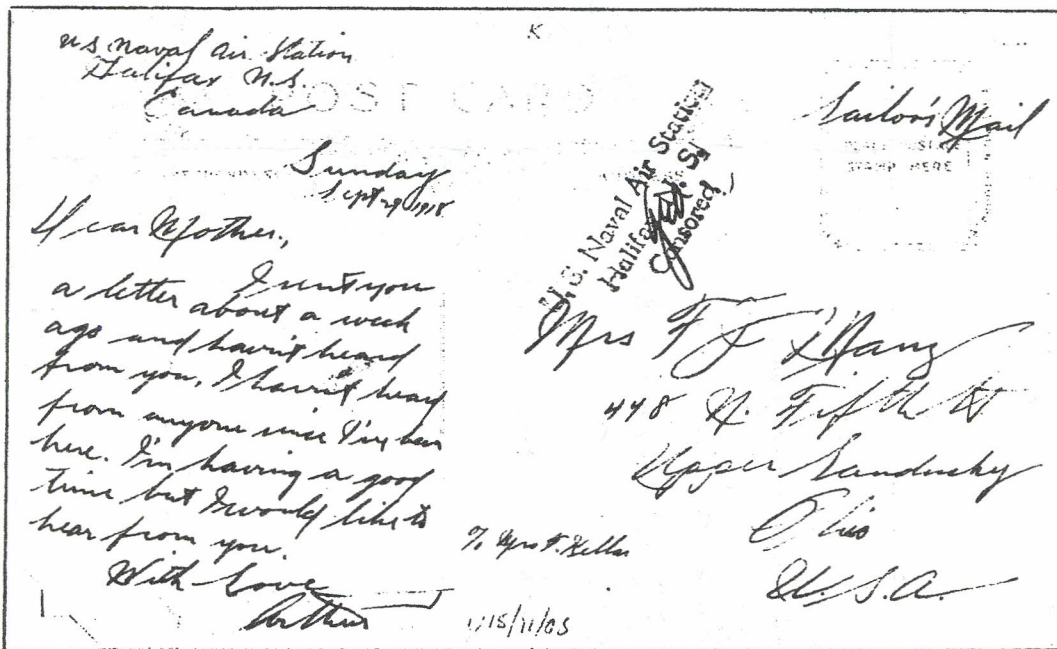 K
US Naval Air Station
Halifax N.S.
Canada
POST CARD
Sunday
Sept 29 1918
Dear Mother,
I sent you
a letter about a week
ago and havn't heard
from you. I havn't heard
from anyone since I've been
here. I'm having a good
time but I would like to
hear from you.
With Love
Arthur
Sailor's Mail
STAMP HERE
U.S. Naval Air Station
Halifax, N. S.
Censored
Mrs F J
448 N. Fifth St
Upper Sandusky
Ohio
U.S.A.
% Mrs F. Keller
15/11/05